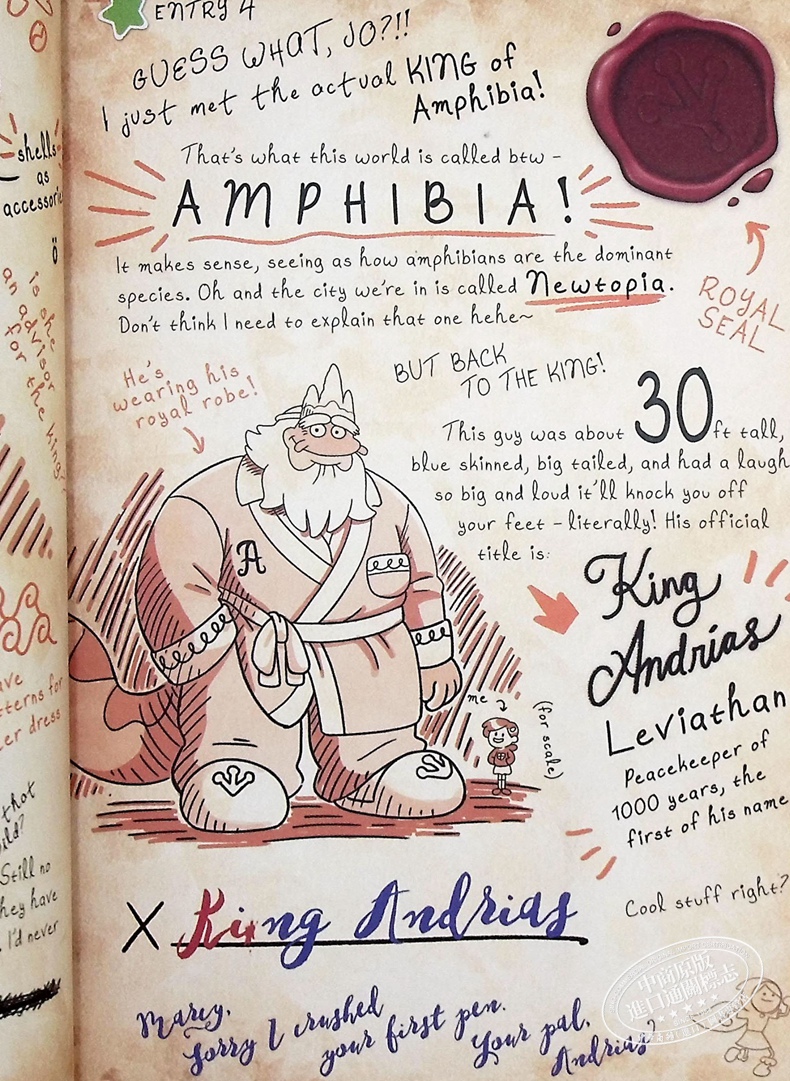 ENTRY 4
GUESS WHAT, JO?!!
I just met the actual KING of
Amphibia!
That's what this world is called btw -
AMPHIBIA!
It makes sense, seeing as how amphibians are the dominant
species. Oh and the city we're in is called Newtopia.
Don't think I need to explain that one hehe~
ROYAL
SEAL
He's
wearing his
royal robe!
BUT BACK
TO THE KING!
This guy was about 30ft tall,
blue skinned, big tailed, and had a laugh
so big and loud it'll knock you off
your feet - literally! His official
title is:
King
Andrias
Leviathan
Peacekeeper of
1000 years, the
first of his name
A
me
(for scale)
Cool stuff right?
X King Andrias
Marcy,
Sorry I crushed
your first pen.
Your pal,
Andrias
shells
as
accessorie
ö
is she
an advisor
for the king
ave
tterns for
er dress
that
ild?
Still no
hey have
I'd never
中商原版
進口通關標志